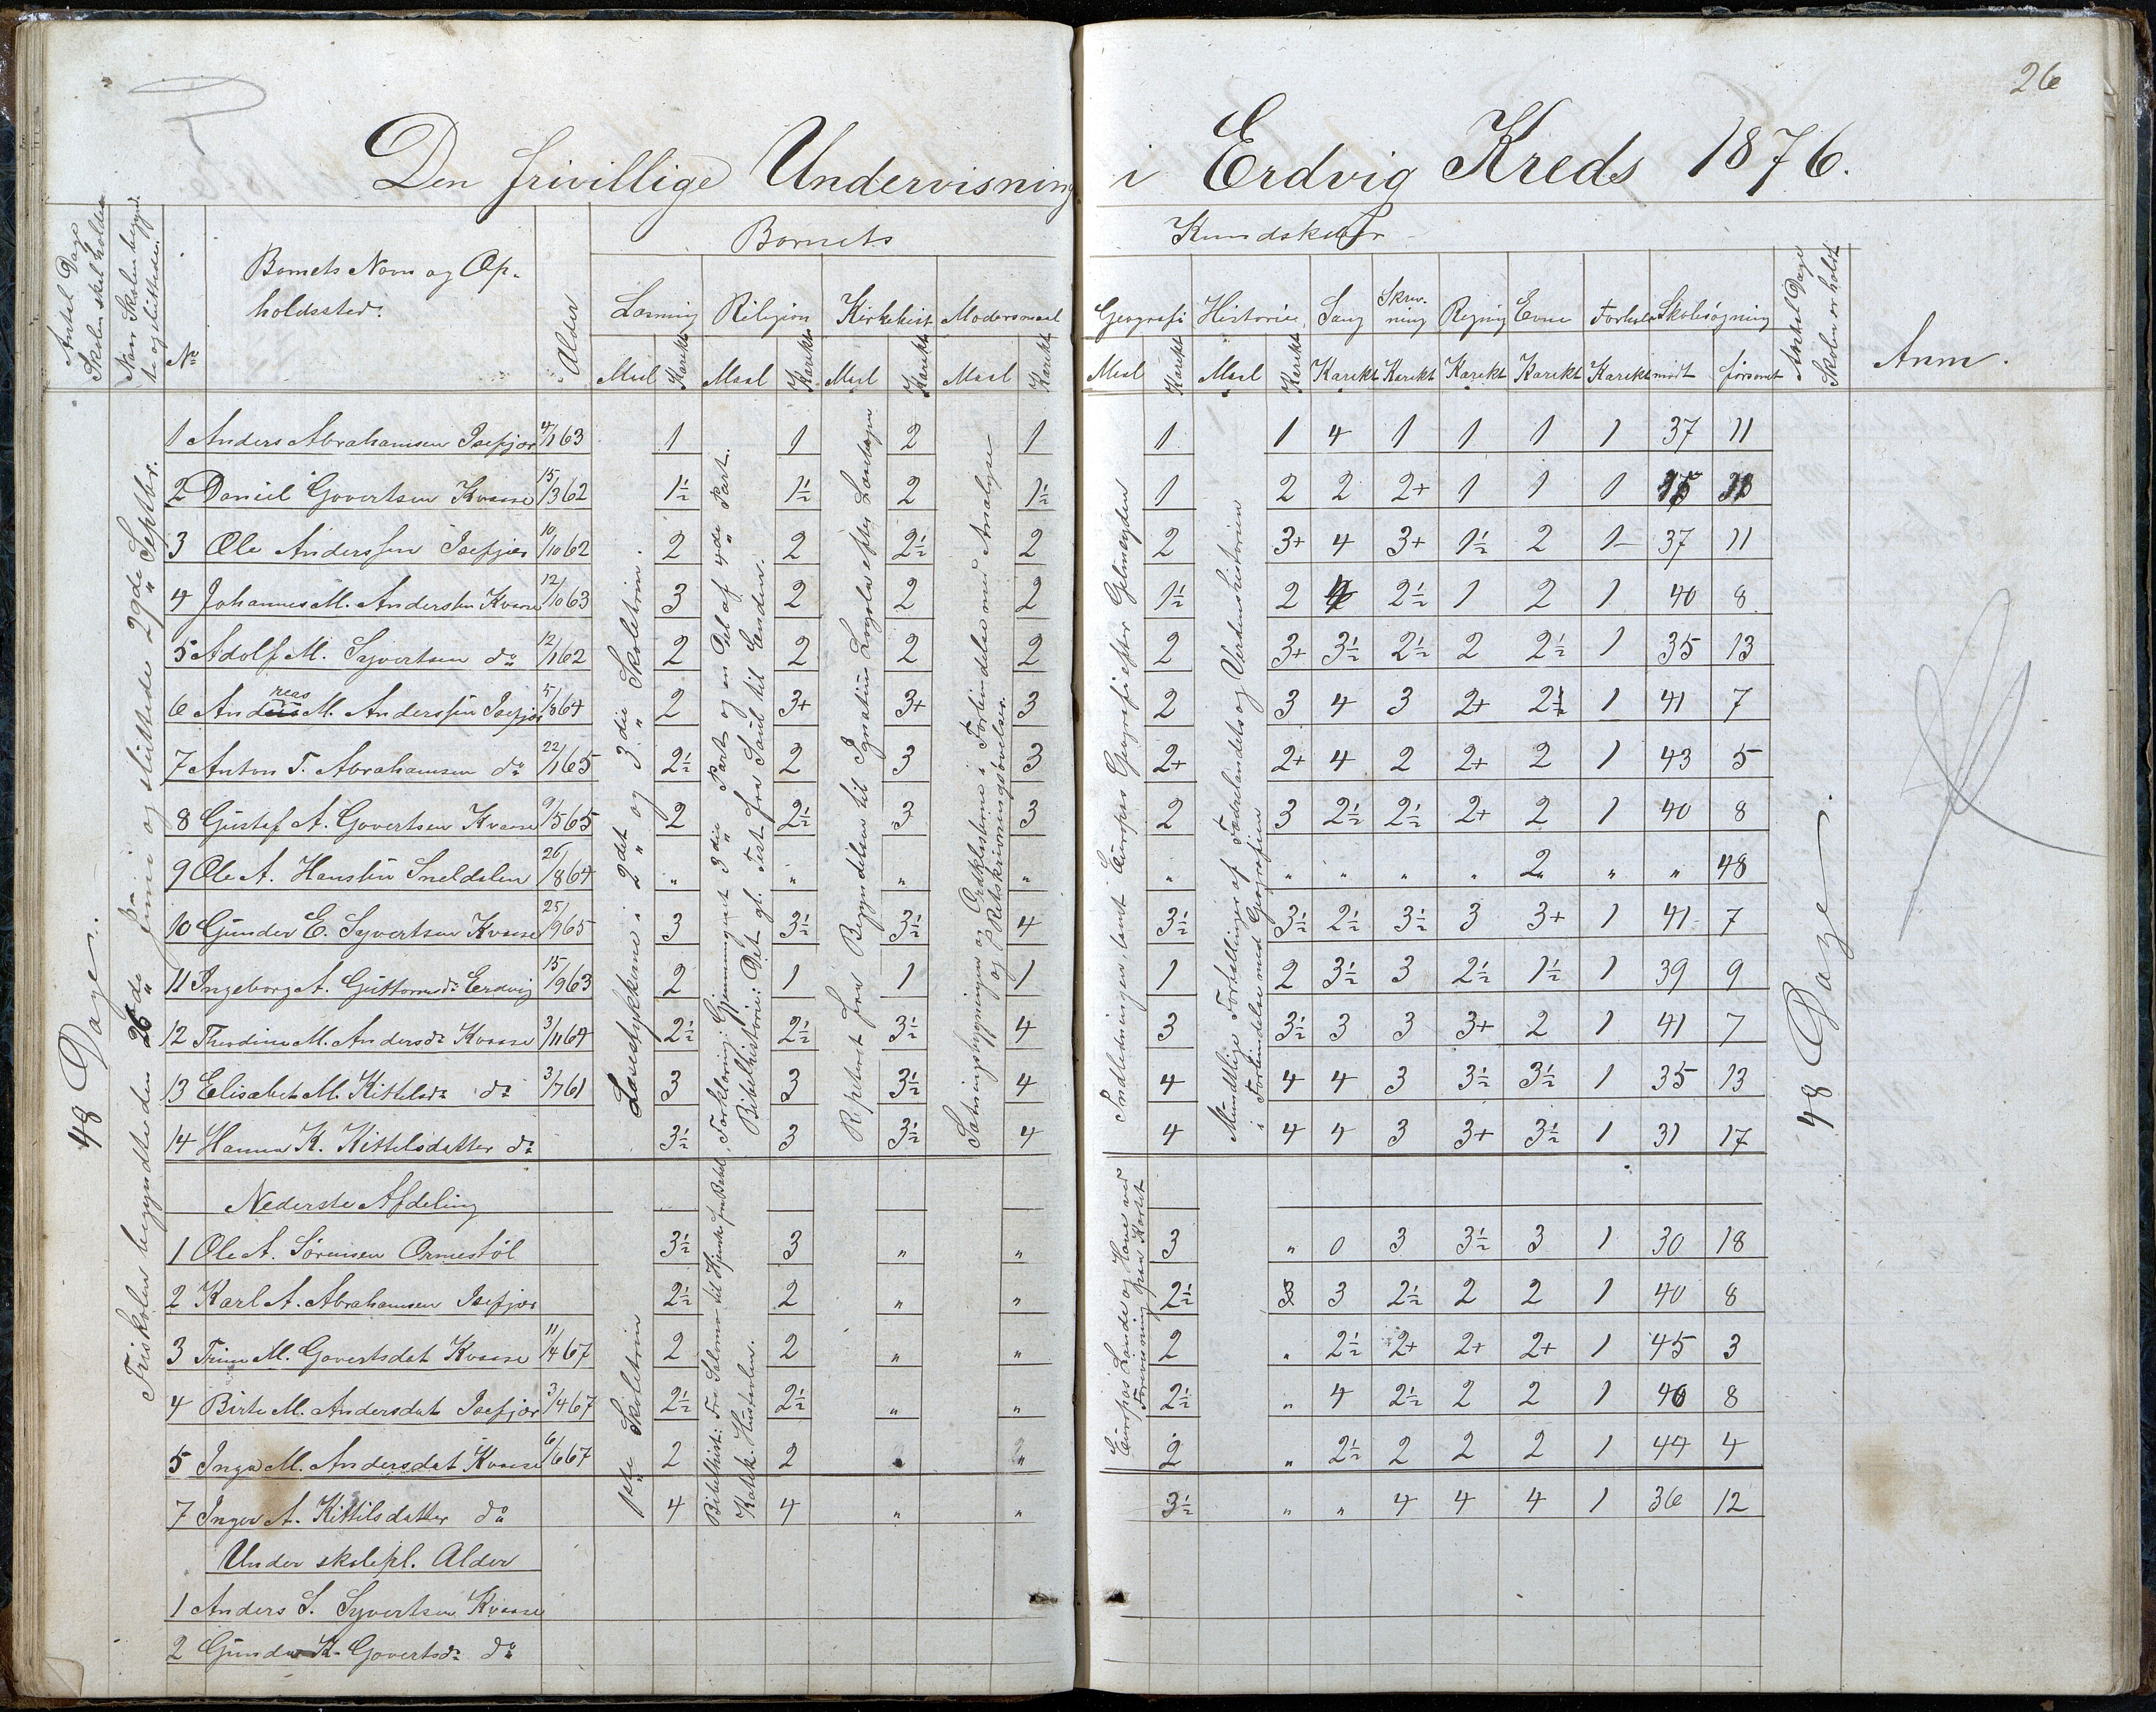 26
Den frivillige Undervisning i Erdvig Kreds 1876.
Antal Dage Skolen skal holdes
Naar Skolen begyndte og sluttede.
No
Barnets Navn og Opholdssted.
Alder
Barnets Kundskaber
Læsning Religion Kirkehist Modersmaal Geografi Historie Sang Skrivning Regning Evne Forhold Skolesøgning
Maal Karakt Maal Karakt Maal Karakt Maal Karakt Maal Karakt Maal Karakt Karakt Karakt Karakt Karakt Karakt mødt forsømt
Antal Dage Skolen er holdt
Anm.
48 Dage.
Friskolen begyndte den 26de Juni og sluttede 29de Septbr.
Læsestykkerne i 2det og 3die Skoletrin.
Forklaring: Gjennemgaaet 3die Part og en Del af 4de Part.
Bibelhistorie: Det gl. Test. fra Saul til Enden.
Repeteret fra Begyndelsen til Ignatius Loyola efter
Sætningsbygningen og Ordklasserne i Forbindelse med Analyse
og Retskrivningsøvelser.
Indledningen, samt Europas Geografi efter
Mundtlige Fortællinger af Fædrelandets og Verdenshistorien
i Forbindelse med Geografien
48 Dage.
1 Anders Abrahamsen Isefjær 4/1 63 1 1 2 1 1 1 4 1 1 1 1 37 11
2 Daniel Govertsen Kvaase 15/3 62 1½ 1½ 2 1½ 1 2 2 2+ 1 1 1
3 Ole Anderssen Isefjær 10/10 62 2 2 2½ 2 2 3+ 4 3+ 1½ 2 1 37 11
4 Johannes M. Andersen Kvaase 12/10 63 3 2 2 2 1½ 2 4 2½ 1 2 1 40 8
5 Adolf M. Syvertsen do 12/1 62 2 2 2 2 2 3+ 3½ 2½ 2 2½ 1 35 13
6 Andreas M. Anderssen Isefjær 5/8 64 2 3+ 3+ 3 2 3 4 3 2+ 2½ 1 41 7
7 Anton T. Abrahamsen do 22/1 65 2½ 2 3 3 2+ 2+ 4 2 2+ 2 1 43 5
8 Gustaf A. Govertsen Kvaase 9/5 65 2 2½ 3 3 2 3 2½ 2½ 2+ 2 1 40 8
9 Ole A. Hansen Sneldalen 26/8 64 " " " " " " " " " 2 " " 48
10 Gunder E. Syvertsen Kvaase 25/9 65 3 3½ 3½ 4 3½ 3½ 2½ 3½ 3 3+ 1 41 7
11 Ingeborg A. Guttormsdr Erdvig 15/9 63 2 1 1 1 1 2 3½ 3 2½ 1½ 1 39 9
12 Thordine M. Andersdr Kvaase 3/11 64 2½ 2½ 3½ 4 3 3½ 3 3 3+ 2 1 41 7
13 Elisabet M. Kittelsdr do 3/7 61 3 3 3½ 4 4 4 4 3 3½ 3½ 1 35 13
14 Hanna K. Kittelsdatter do 3½ 3 3½ 4 4 4 4 3 3+ 3½ 1 31 17
Nederste Afdeling
1ste Skoletrin
Bibelhist: Fra Salomo til
Katek: Hustavlen.
Europas Lande og Have ved
Forevisning paa Kartet
1 Ole A. Sørensen Ormestøl 3½ 3 " " 3 " 0 3 3½ 3 1 30 18
2 Karl A. Abrahamsen Isefjær 2½ 2 " " 2½ 3 3 2½ 2 2 1 40 8
3 Trine M. Govertsdat Kvaase 11/4 67 2 2 " " 2 " 2½ 2+ 2+ 2+ 1 45 3
4 Birte M. Andersdat Isefjær 3/4 67 2½ 2½ " " 2½ " 4 2½ 2 2 1 40 8
5 Inga M. Andersdat Kvaase 6/6 67 2 2 " " 2 " 2½ 2 2 2 1 44 4
7 Inger A. Kittilsdatter do 4 4 " " 3½ " " 4 4 4 1 36 12
Under skolepl. Alder
1 Anders S. Syvertsen Kvaase
2 Gunda K. Govertsdr do